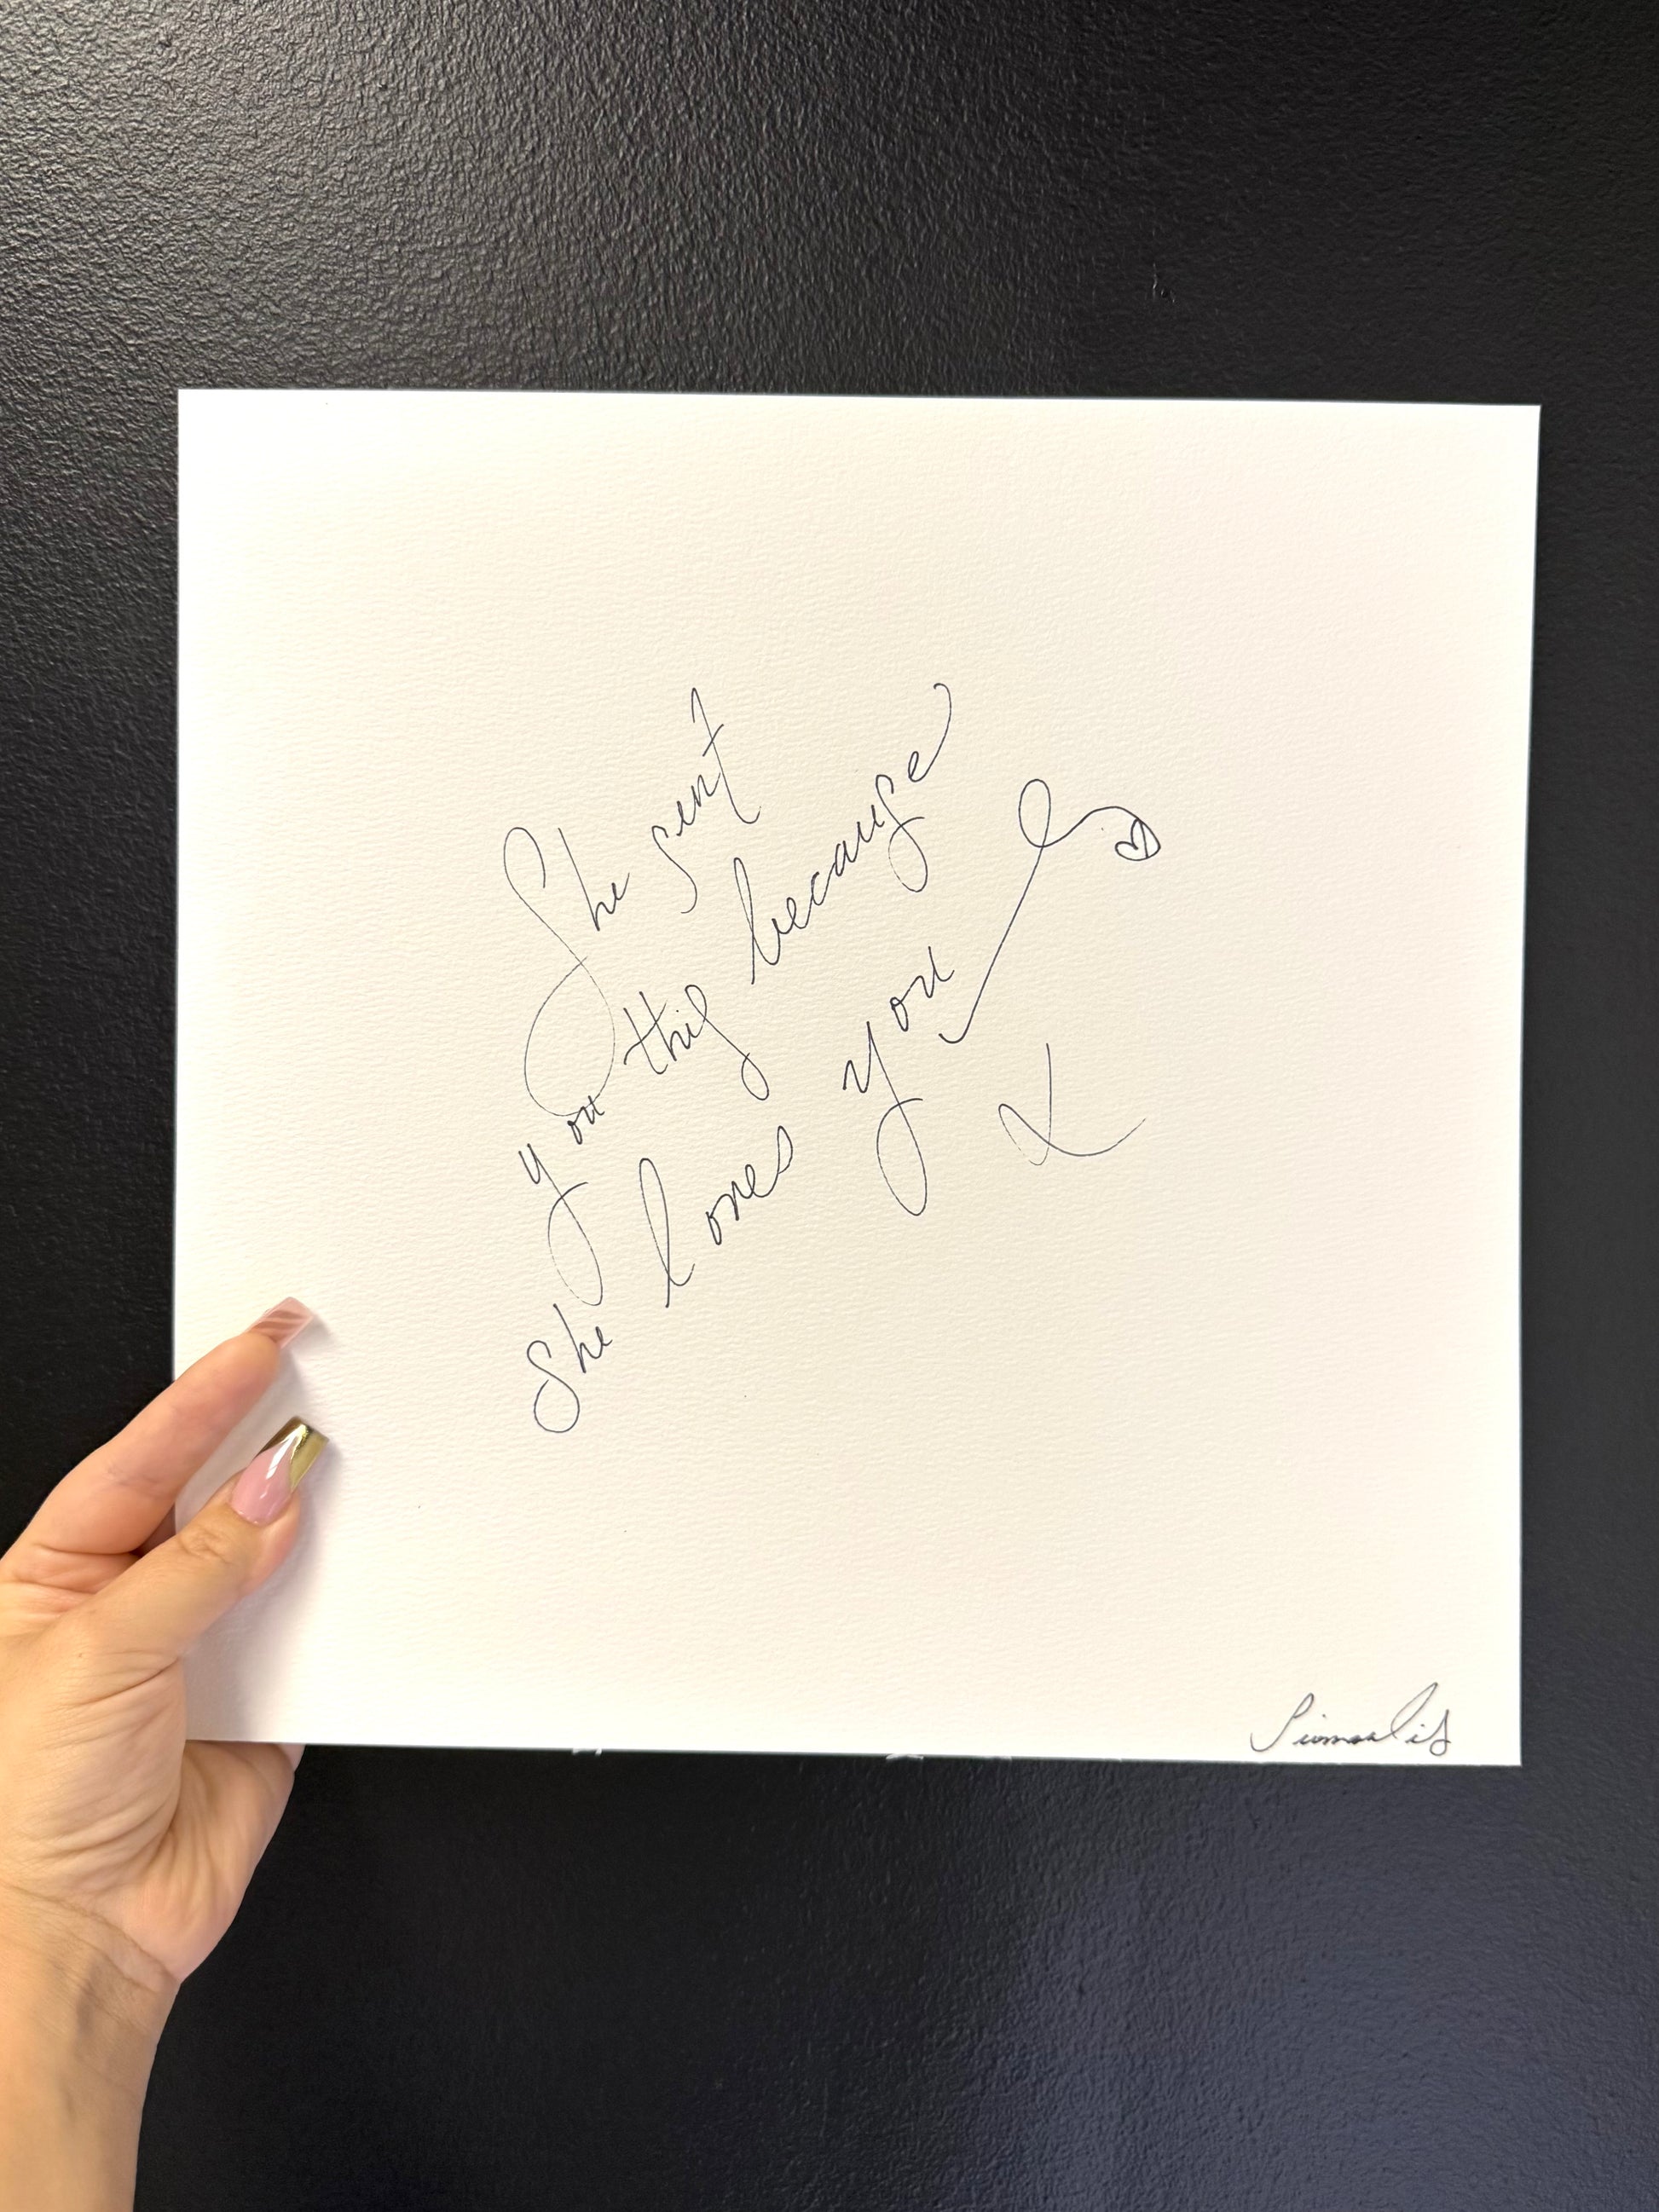 She sent
you this because
She loves you
X